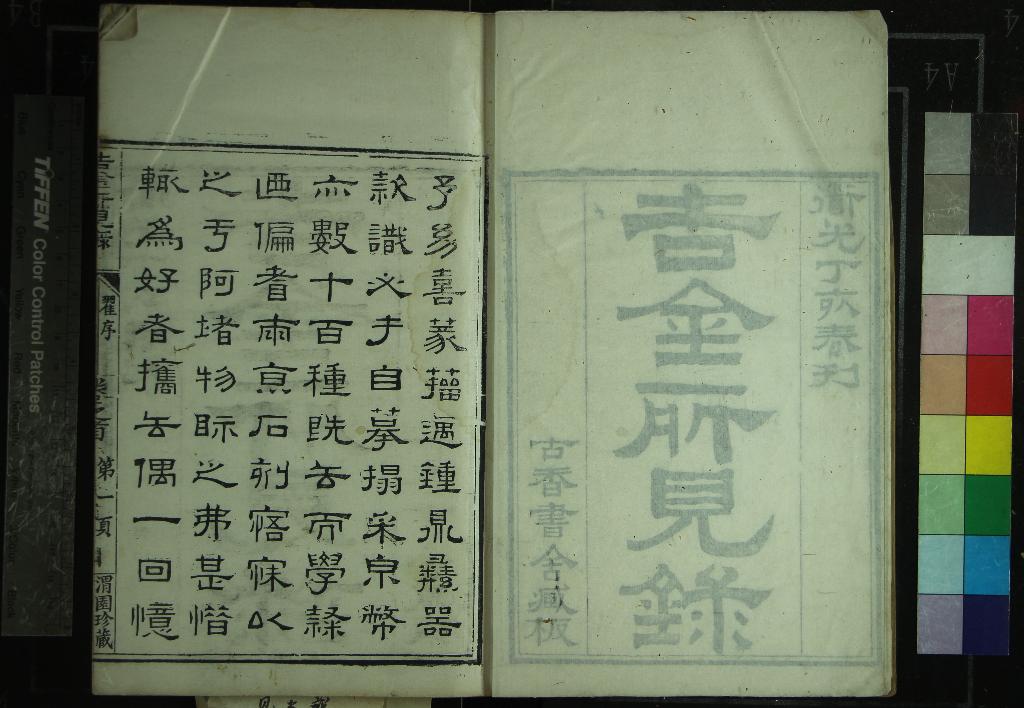 衟光丁亥春刊
吉金所見錄
古香書舍藏板
予夙喜篆籀遇鍾鼎彝器
款識必手自摹搨采泉幣
亦數十百種既去而學隸
迺偏耆兩京石刻寤寐以
之亏阿堵物眎之弗甚惜
輒為好者攜去偶一回憶
吉金所見錄
翟序
卷之首 第一頁
渭園珍藏
TIFFEN Color Control Patches